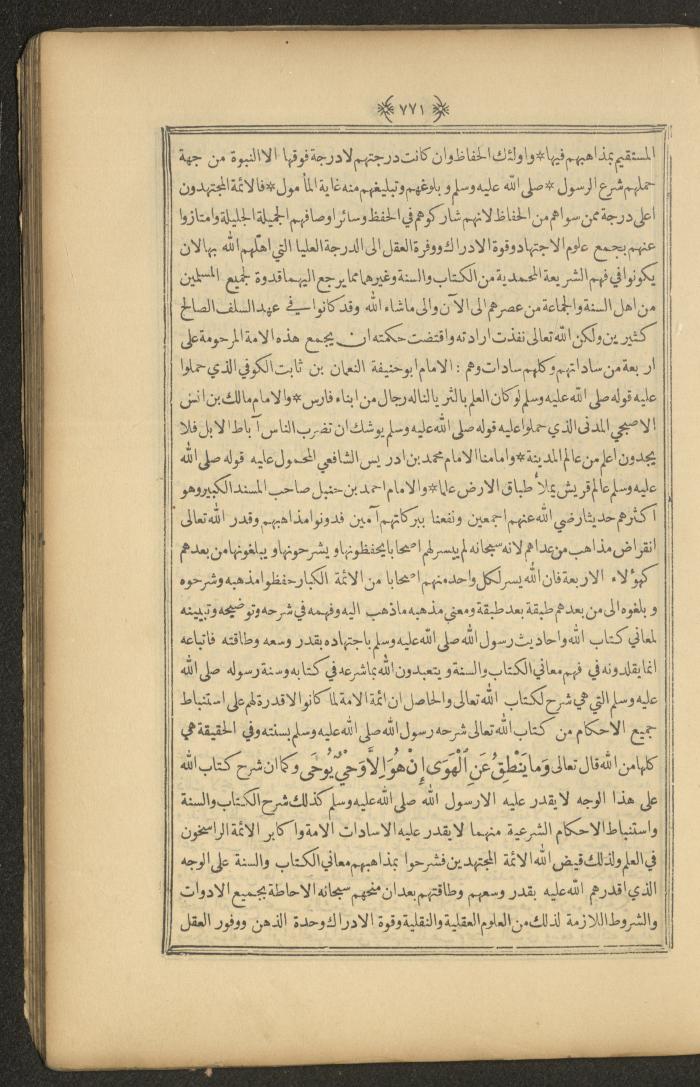 ﴿ ٧٧١ ﴾
المستقيم بمذاهبهم فيها * واولئك الحفاظ وان كانت درجتهم لا درجة فوقها الا النبوة من جهة
حملهم شرع الرسول * صلى الله عليه وسلم وبلوغهم وتبليغهم منه غاية المأمول * فالائمة المجتهدون
اعلى درجة ممن سواهم من الحفاظ لانهم شاركوهم في الحفظ وسائر اوصافهم الجميلة الجليلة وامتازوا
عنهم بجمع علوم الاجتهاد وقوة الادراك ووفرة العقل الى الدرجة العليا التي اهلهم الله بها لان
يكونوا في فهم الشريعة المحمدية من الكتاب والسنة وغيرهما مما يرجع اليهما قدوة لجميع المسلمين
من اهل السنة والجماعة من عصرهم الى الآن والى ماشاء الله وقد كانوا في عهد السلف الصالح
كثيرين ولكن الله تعالى نفذت ارادته واقتضت حكمته ان يجمع هذه الامة المرحومة على
اربعة من ساداتهم وكلهم سادات وهم : الامام ابو حنيفة النعمان بن ثابت الكوفي الذي حملوا
عليه قوله صلى الله عليه وسلم لو كان العلم بالثريا لناله رجال من ابناء فارس * والامام مالك بن انس
الاصبحي المدنى الذي حملوا عليه قوله صلى الله عليه وسلم يوشك ان تضرب الناس آباط الابل فلا
يجدون اعلم من عالم المدينة * وامامنا الامام محمد بن ادريس الشافعي المحمول عليه قوله صلى الله
عليه وسلم عالم قريش يملأ طباق الارض علما * والامام احمد بن حنبل صاحب المسند الكبير وهو
اكثرهم حديثا رضي الله عنهم اجمعين ونفعنا ببركاتهم آمين فدونوا مذاهبهم وقدر الله تعالى
انقراض مذاهب من عداهم لانه سبحانه لم ييسر لهم اصحابا يحفظونها ويشرحونها ويبلغونها من بعدهم
كهؤلاء الاربعة فان الله يسر لكل واحد منهم اصحابا من الائمة الكبار حفظوا مذهبه وشرحوه
وبلغوه الى من بعدهم طبقة بعد طبقة ومعنى مذهبه ماذهب اليه وفهمه في شرحه وتوضيحه وتبيينه
لمعاني كتاب الله واحاديث رسول الله صلى الله عليه وسلم باجتهاده بقدر وسعه وطاقته فاتباعه
انما يقلدونه في فهم معاني الكتاب والسنة ويتعبدون الله بما شرعه في كتابه وسنة رسوله صلى الله
عليه وسلم التي هي شرح لكتاب الله تعالى والحاصل ان ائمة الامة لما كانوا لا قدرة لهم على استنباط
جميع الاحكام من كتاب الله تعالى شرحه رسول الله صلى الله عليه وسلم بسنته وفي الحقيقة هي
كلها من الله قال تعالى وَمَا يَنْطِقُ عَنِ ٱلْهَوَى إِنْ هُوَ إِلَّا وَحْيٌ يُوحَى وكما ان شرح كتاب الله
على هذا الوجه لا يقدر عليه الا رسول الله صلى الله عليه وسلم كذلك شرح الكتاب والسنة
واستنباط الاحكام الشرعية منهما لا يقدر عليه الا سادات الامة واكابر الائمة الراسخون
في العلم ولذلك قيض الله الائمة المجتهدين فشرحوا بمذاهبهم معاني الكتاب والسنة على الوجه
الذي اقدرهم الله عليه بقدر وسعهم وطاقتهم بعد ان منحهم سبحانه الاحاطة بجميع الادوات
والشروط اللازمة لذلك من العلوم العقلية والنقلية وقوة الادراك وحدة الذهن ووفور العقل